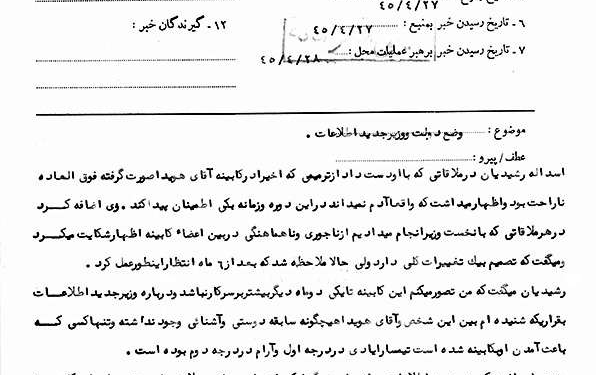 ۴۵/۴/۲۷
۶ - تاریخ رسیدن خبر بمنبع : ۴۵/۴/۲۷
۱۲ - گیرندگان خبر :
۷ - تاریخ رسیدن خبر برهبر عملیات محل : ۴۵/۴/۲۸
موضوع : وضع دولت ووزیرجدید اطلاعات .
عطف / پیرو :
اسداله رشیدیان درملاقاتی که بااودست داد ازترمیمی که اخیرا درکابینه آقای هویدا صورت گرفته فوق العاده
ناراحت بود واظهارمیداشت که واقعا آدم نمیداند دراین دوره وزمانه بکی اطمینان پیدا کند . وی اضافه کرد
درهرملاقاتی که بانخست وزیرانجام میدادیم ازناجوری وناهماهنگی دربین اعضاء کابینه اظهارشکایت میکرد
ومیگفت که تصمیم بیك تغییرات کلی دارد ولی حالا ملاحظه شد که بعد از ۶ ماه انتظار اینطورعمل کرد .
رشیدیان میگفت که من تصورمیکنم این کابینه تایکی دوماه دیگربیشتربرسرکارنباشد ودرباره وزیرجدید اطلاعات
بقراریکه شنیده ام بین این شخص وآقای هویدا هیچگونه سابقه دوستی وآشنائی وجود نداشته وتنها کسی که
باعث آمدن اوبکابینه شده است تیمسارایادی دردرجه اول وآرام دردرجه دوم بوده است .